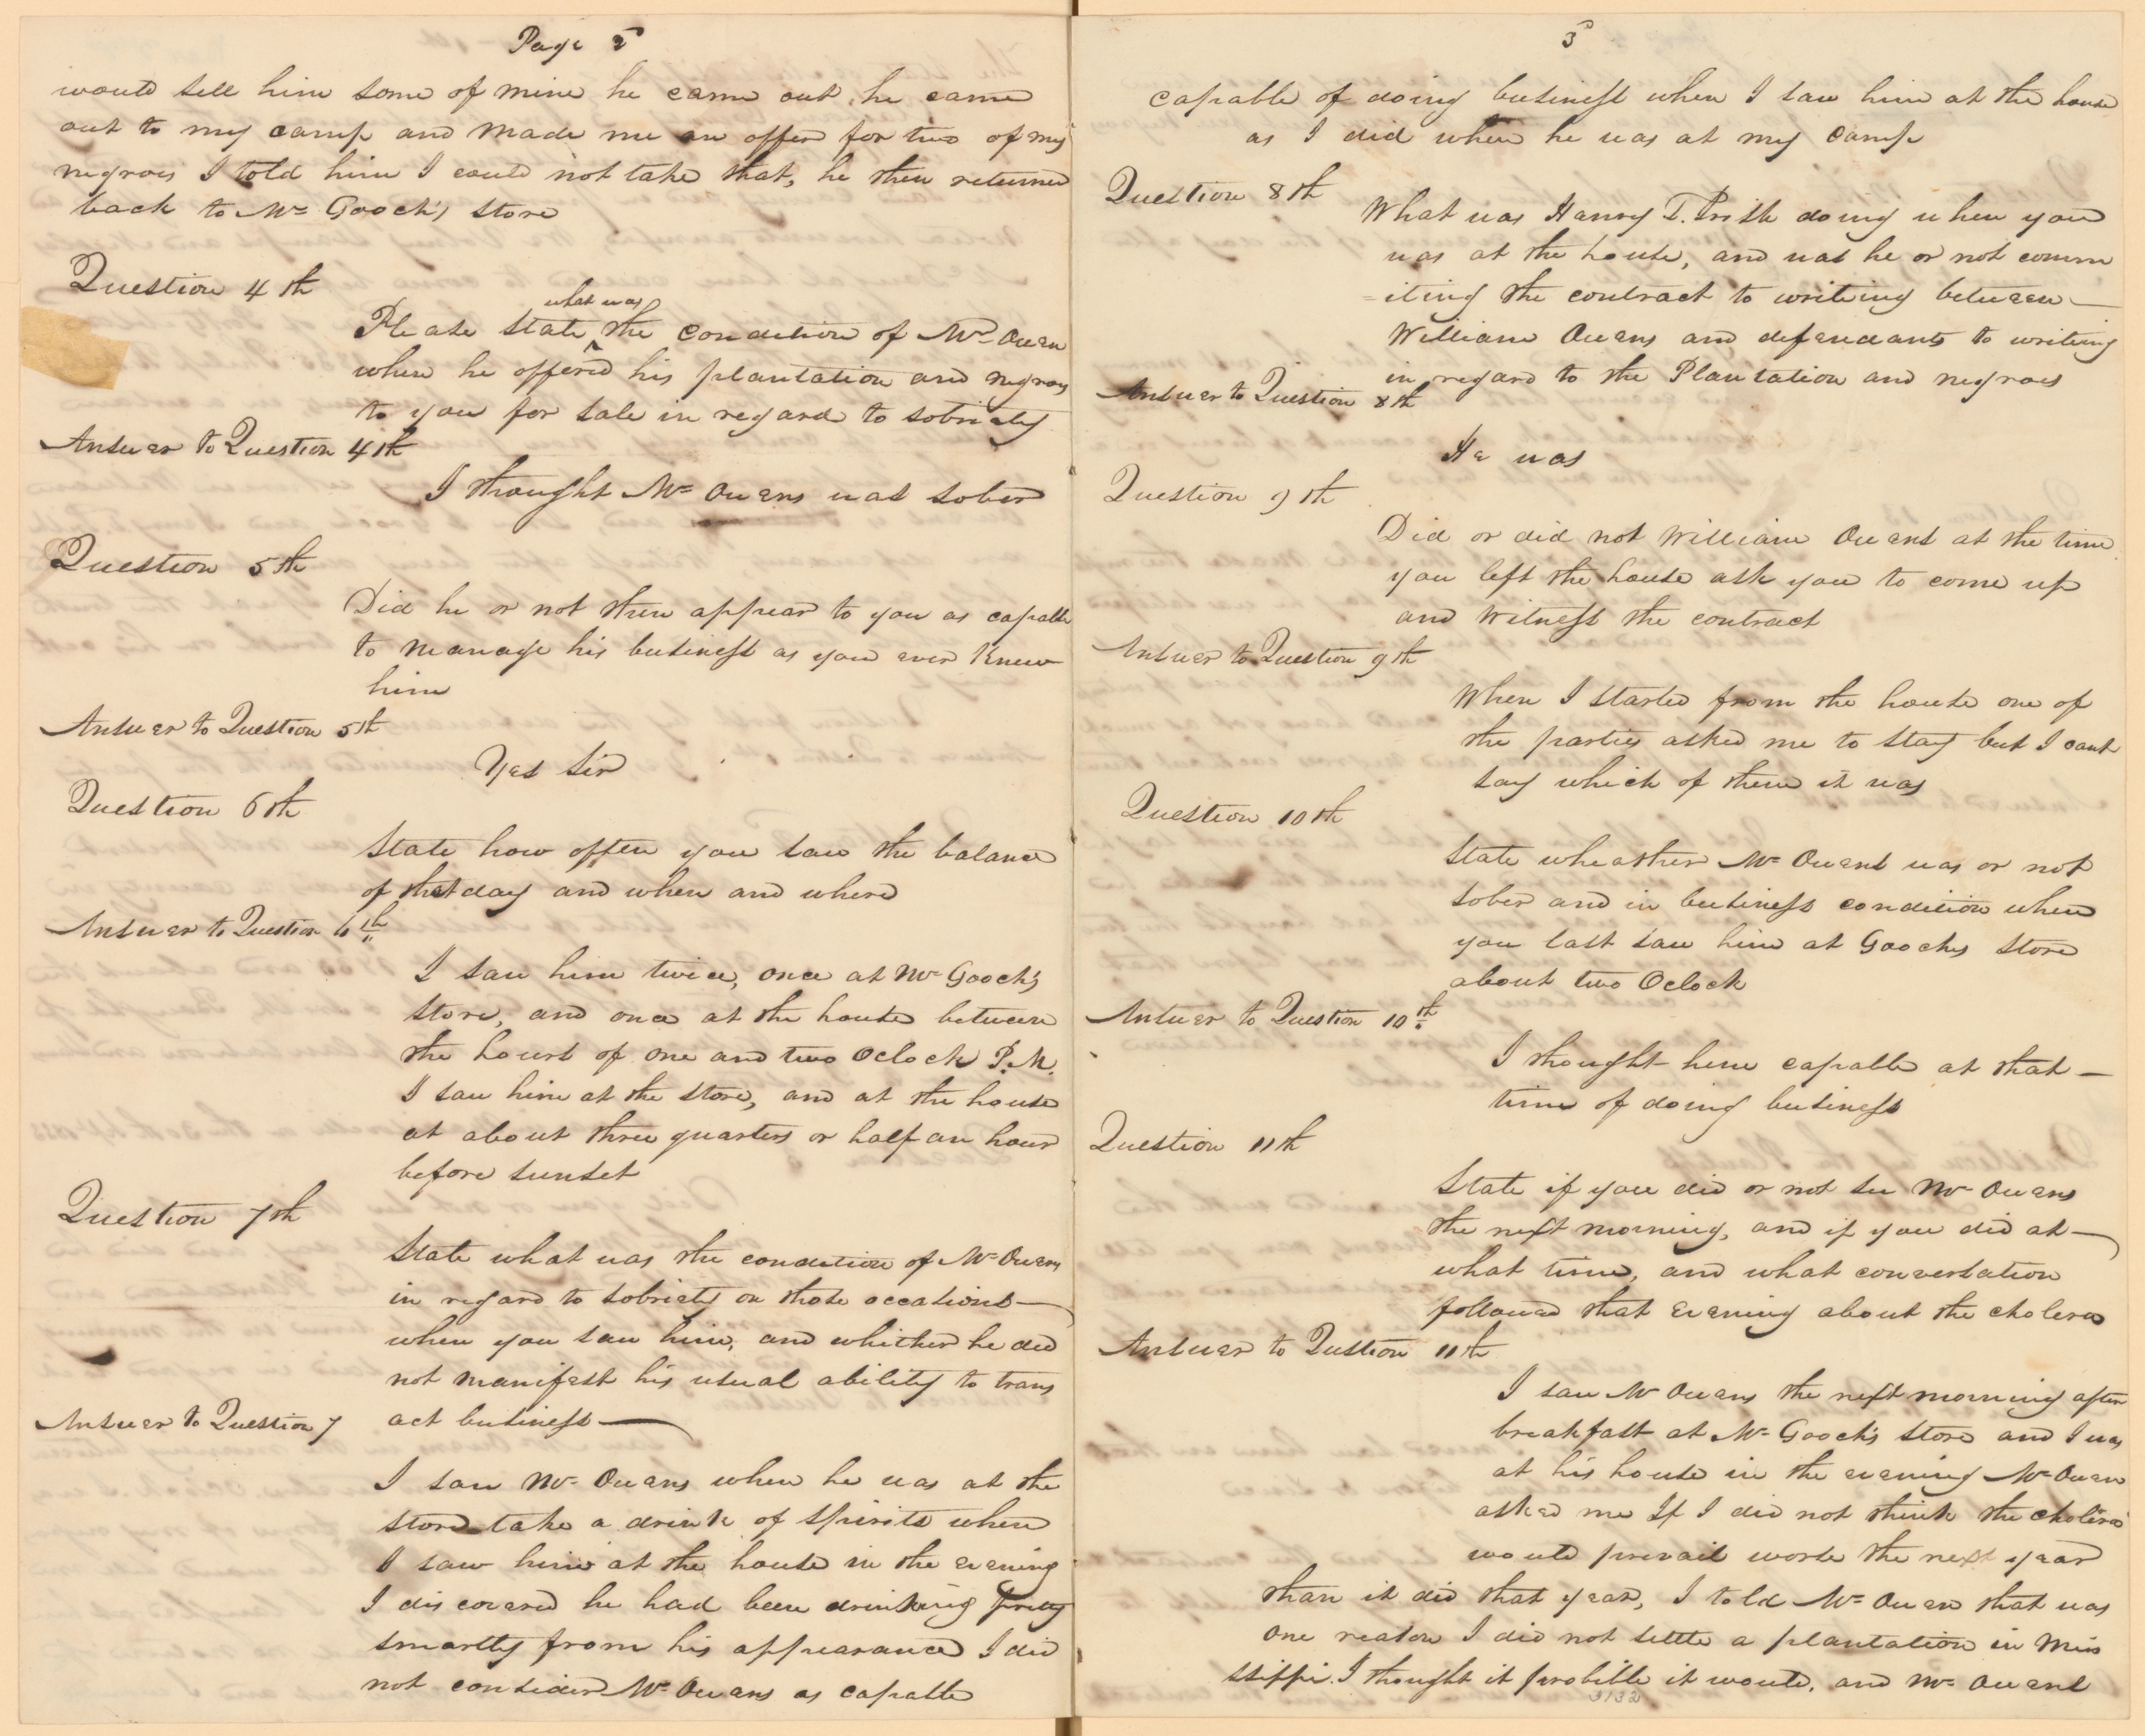 Page 2
would sell him some of mine he came out, he came
out to my camp and made me an offer for two of my
negroes I told him I could not take that, he then returned
back to Mr Gooch's store
Question 4th
what was
Please state the condition of Mr Owen
when he offered his plantation and negroes
to you for sale in regard to sobriety
Answer to Question 4th
I thought Mr Owens was sober
Question 5th
Did he or not then appear to you as capable
to manage his business as you ever knew
him
Answer to Question 5th
Yes Sir
Question 6th
State how often you saw the balance
of that day and when and where
Answer to Question 6th
I saw him twice, once at Mr Gooch's
store, and once at the house between
the hours of one and two Oclock P.M.
I saw him at the store, and at the house
at about three quarters or half an hour
before sunset
Question 7th
State what was the condition of Mr Owens
in regard to sobriety on those occasions
when you saw him, and whither he did
not manifest his usual ability to trans
act business
Answer to Question 7
I saw Mr Owens when he was at the
store take a drink of spirits when
I saw him at the house in the evening
I discovered he had been drinking pretty
smartly from his appearance I did
not consider Mr Owens as capable
3
capable of doing business when I saw him at the house
as I did when he was at my camp
Question 8th
What was Henry T. Irish doing when you
was at the house, and was he or not comm
=iting the contract to writing between
William Owens and defendants to writing
in regard to the Plantation and negroes
Answer to Question 8th
He was
Question 9th
Did or did not William Owens at the time
you left the house ask you to come up
and witness the contract
Answer to Question 9th
When I started from the house one of
the parties asked me to stay but I cant
say which of them it was
Question 10th
State wheather Mr Owens was or not
sober and in business condition when
you last saw him at Goochs store
about two Oclock
Answer to Question 10th
I thought him capable at that
time of doing business
Question 11th
State if you did or not see Mr Owens
the next morning, and if you did at
what time, and what conversation
followed that evening about the cholera
Answer to Qustion 11th
I saw Mr Owens the next morning after
breakfast at Mr Gooch's store and I was
at his house in the evening Mr Owen
asked me If I did not think the cholera
would prevail worse the next year
than it did that year, I told Mr Owen that was
one reason I did not settle a plantation in Miss
ssippi. I thought it probible it would, and Mr Owens
3132